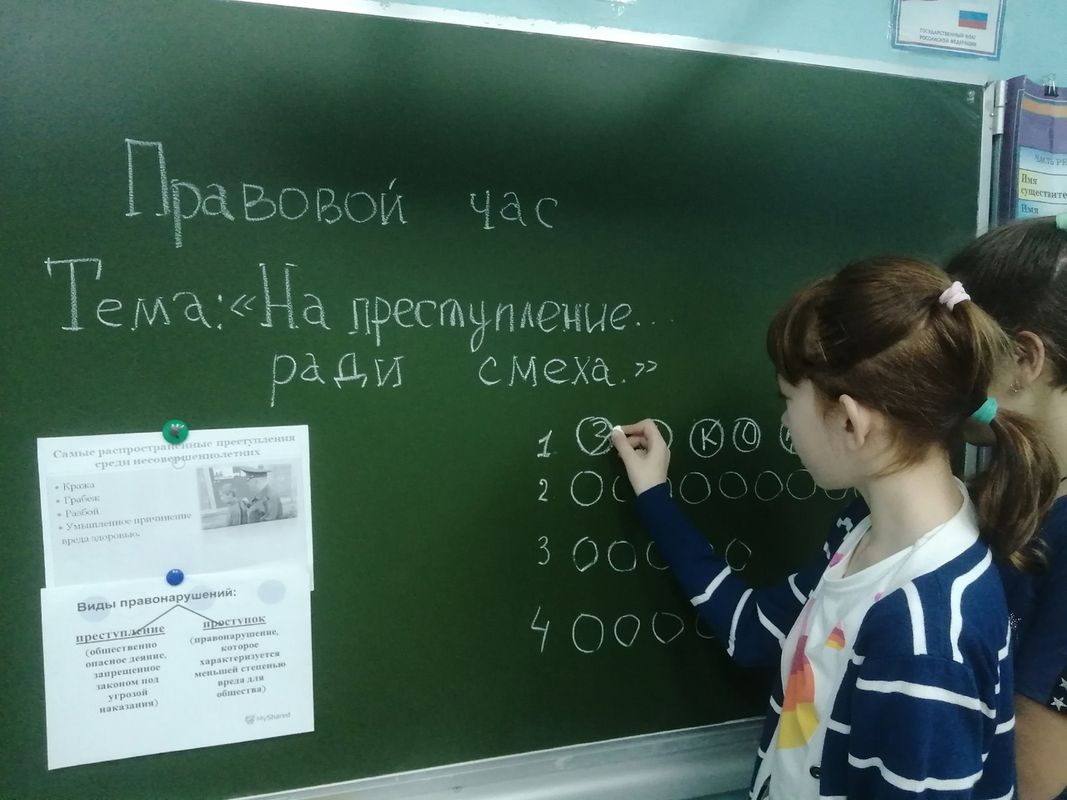 ГОСУДАРСТВЕННЫЙ ФЛАГ
РОССИЙСКОЙ ФЕДЕРАЦИИ
ЧАСТЬ РЕ
Имя
существите
Имя
Правовой час
Тема: «На преступление...
ради смеха.»
1 З К О
2
3
4
Самые распространенные преступления
среди несовершеннолетних
• Кража
• Грабеж
• Разбой
• Умышленное причинение
вреда здоровью.
Виды правонарушений:
преступление
(общественно
опасное деяние,
запрещенное
законом под
угрозой
наказания)
проступок
(правонарушение,
которое
характеризуется
меньшей степенью
вреда для
общества)
MyShared